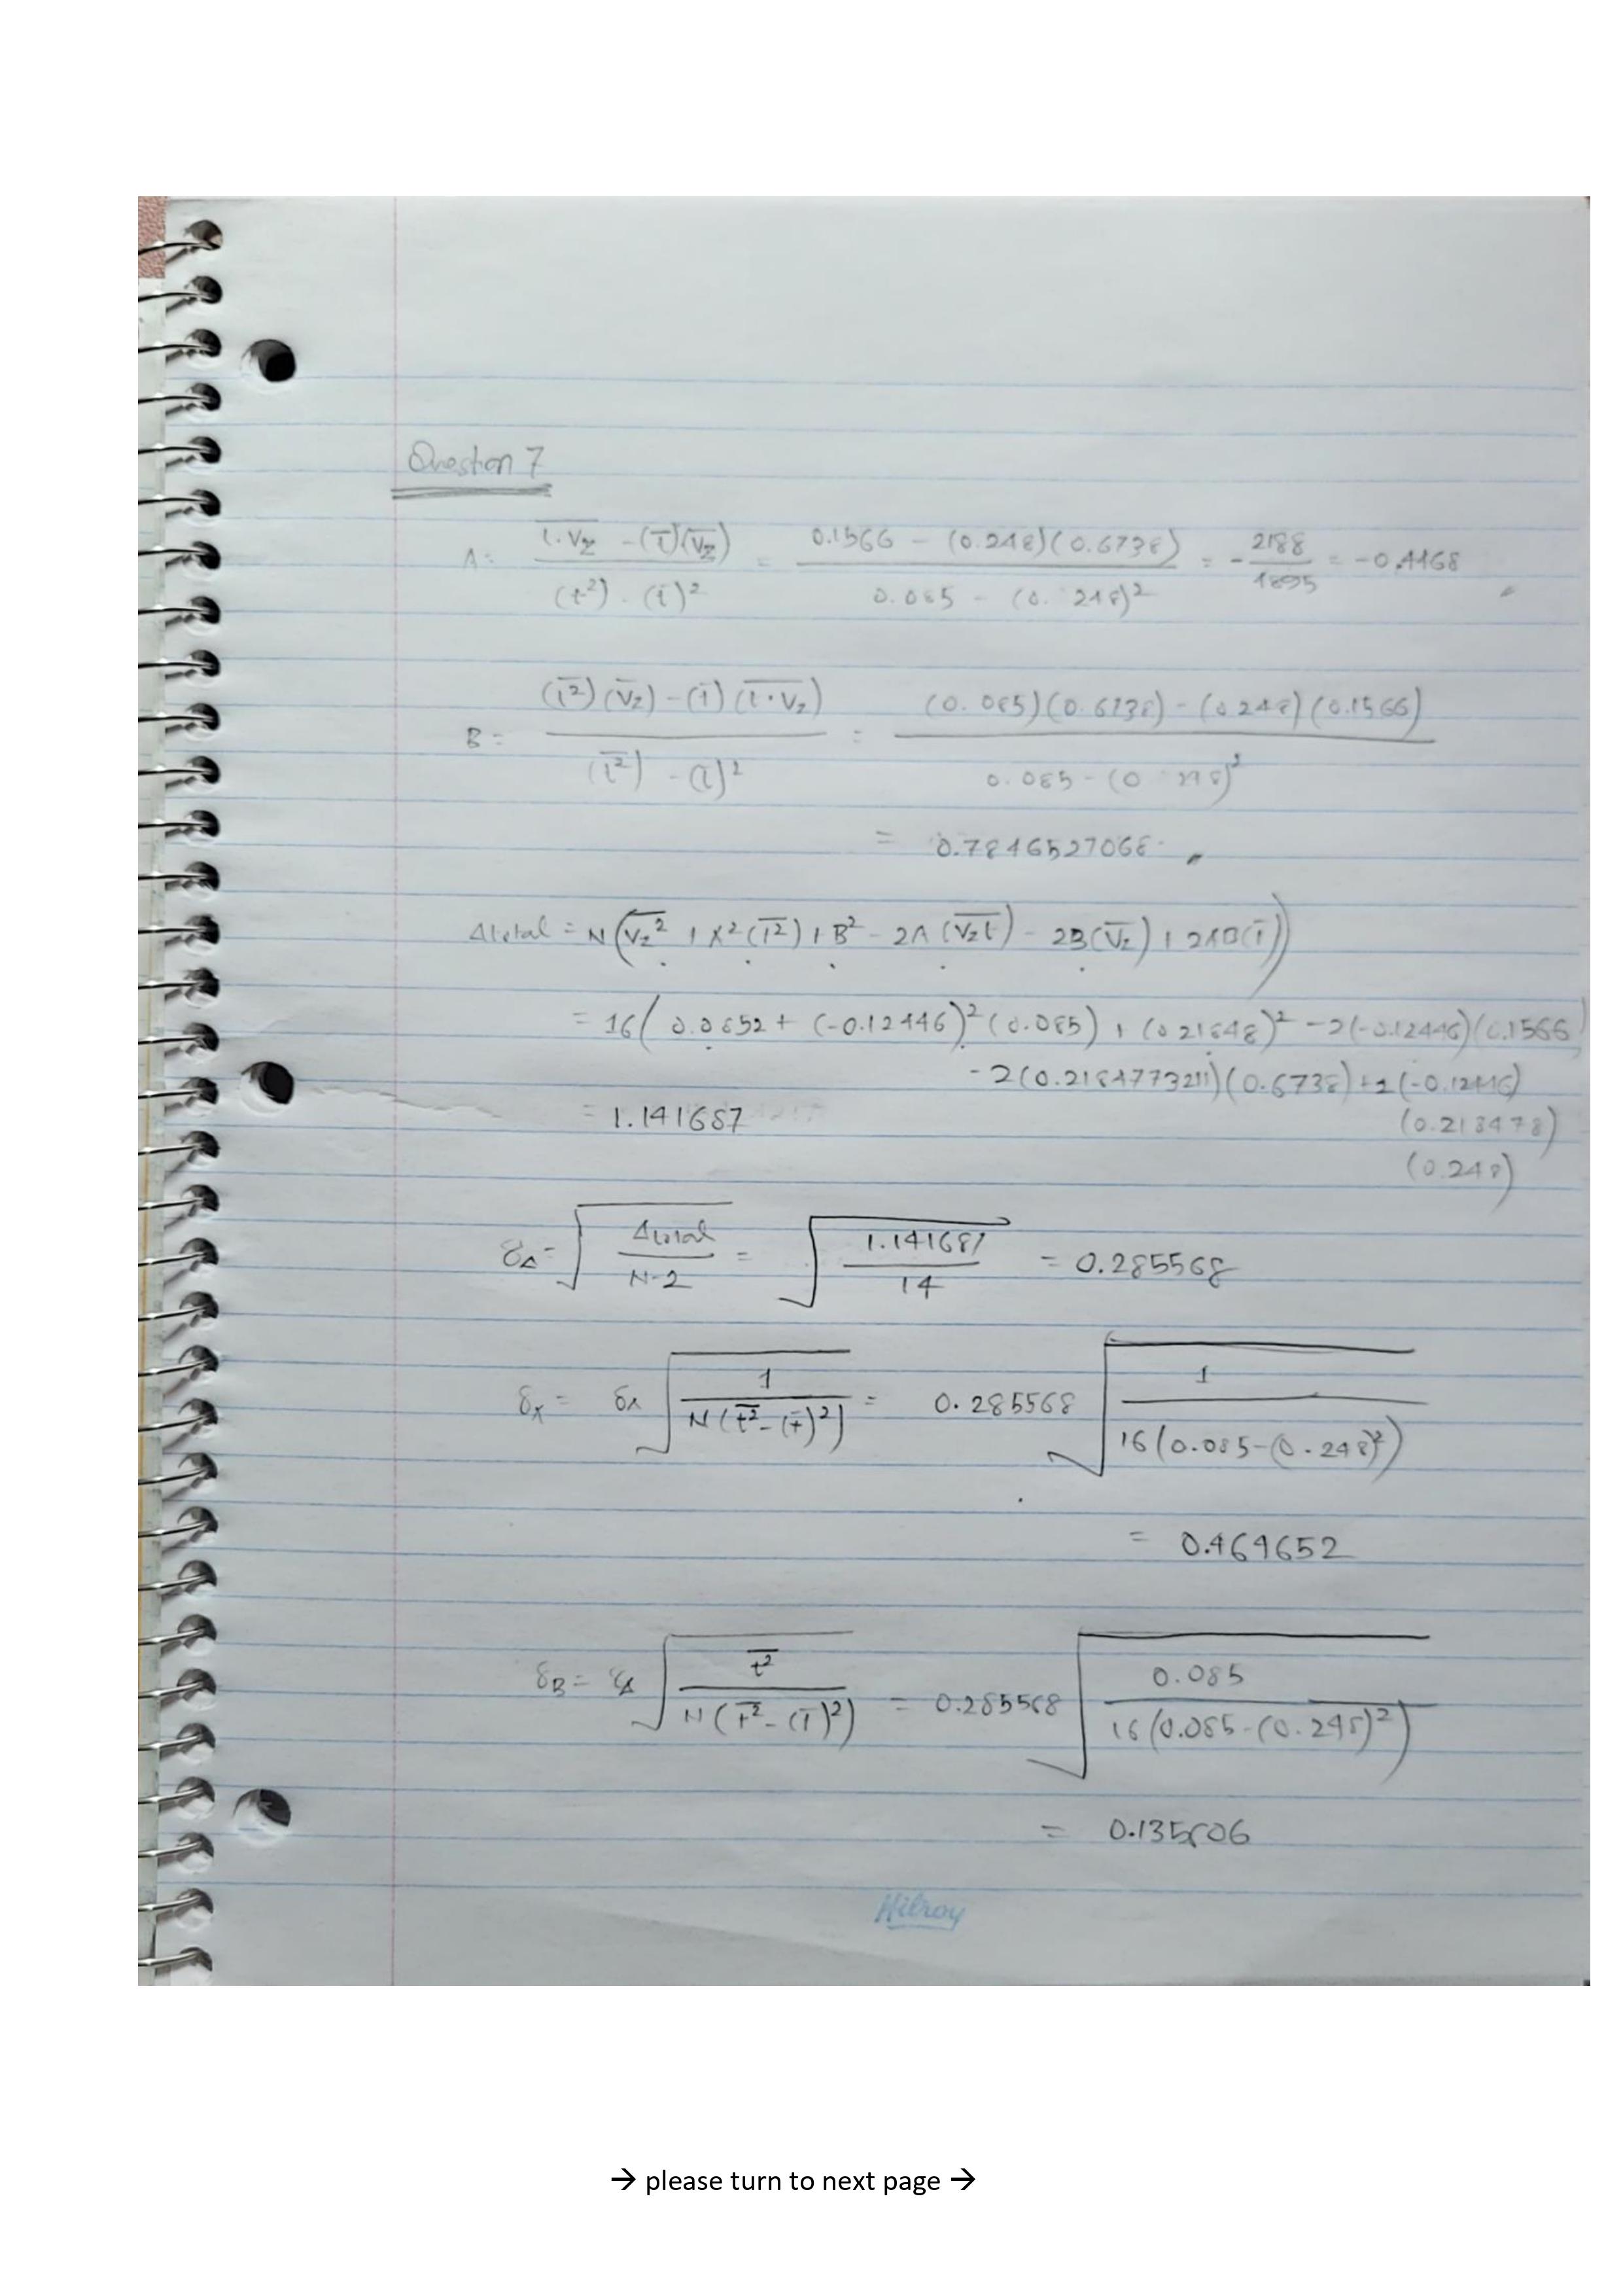 Question 7
A = t·Vz - (t̄)(Vz) / (t²) - (t̄)² = 0.1566 - (0.248)(0.6738) / 0.085 - (0. 248)² = - 2188 / 4895 = -0.4468
B = (t²)(V̄z) - (t̄)(t·Vz) / (t²) - (t̄)² = (0.085)(0.6738) - (0.248)(0.1566) / 0.085 - (0 248)²
= 0.7846527068
Δtotal = N(Vz² + A²(t²) + B² - 2A(Vzt) - 2B(V̄z) + 2AB(t̄))
= 16(0.0852 + (-0.12446)²(0.085) + (0.21848)² - 2(-0.12446)(0.1566)
- 2(0.2184773211)(0.6738) + 2(-0.12446)
= 1.141687
(0.218478)
(0.248)
δΔ = √ Δtotal / N-2 = √ 1.141687 / 14 = 0.285568
δA = δΔ √ 1 / N(t² - (t̄)²) = 0.285568 √ 1 / 16(0.085-(0.248)²)
= 0.464652
δB = δΔ √ t² / N(t² - (t̄)²) = 0.285568 √ 0.085 / 16(0.085-(0.248)²)
= 0.135606
Hilroy
→ please turn to next page →